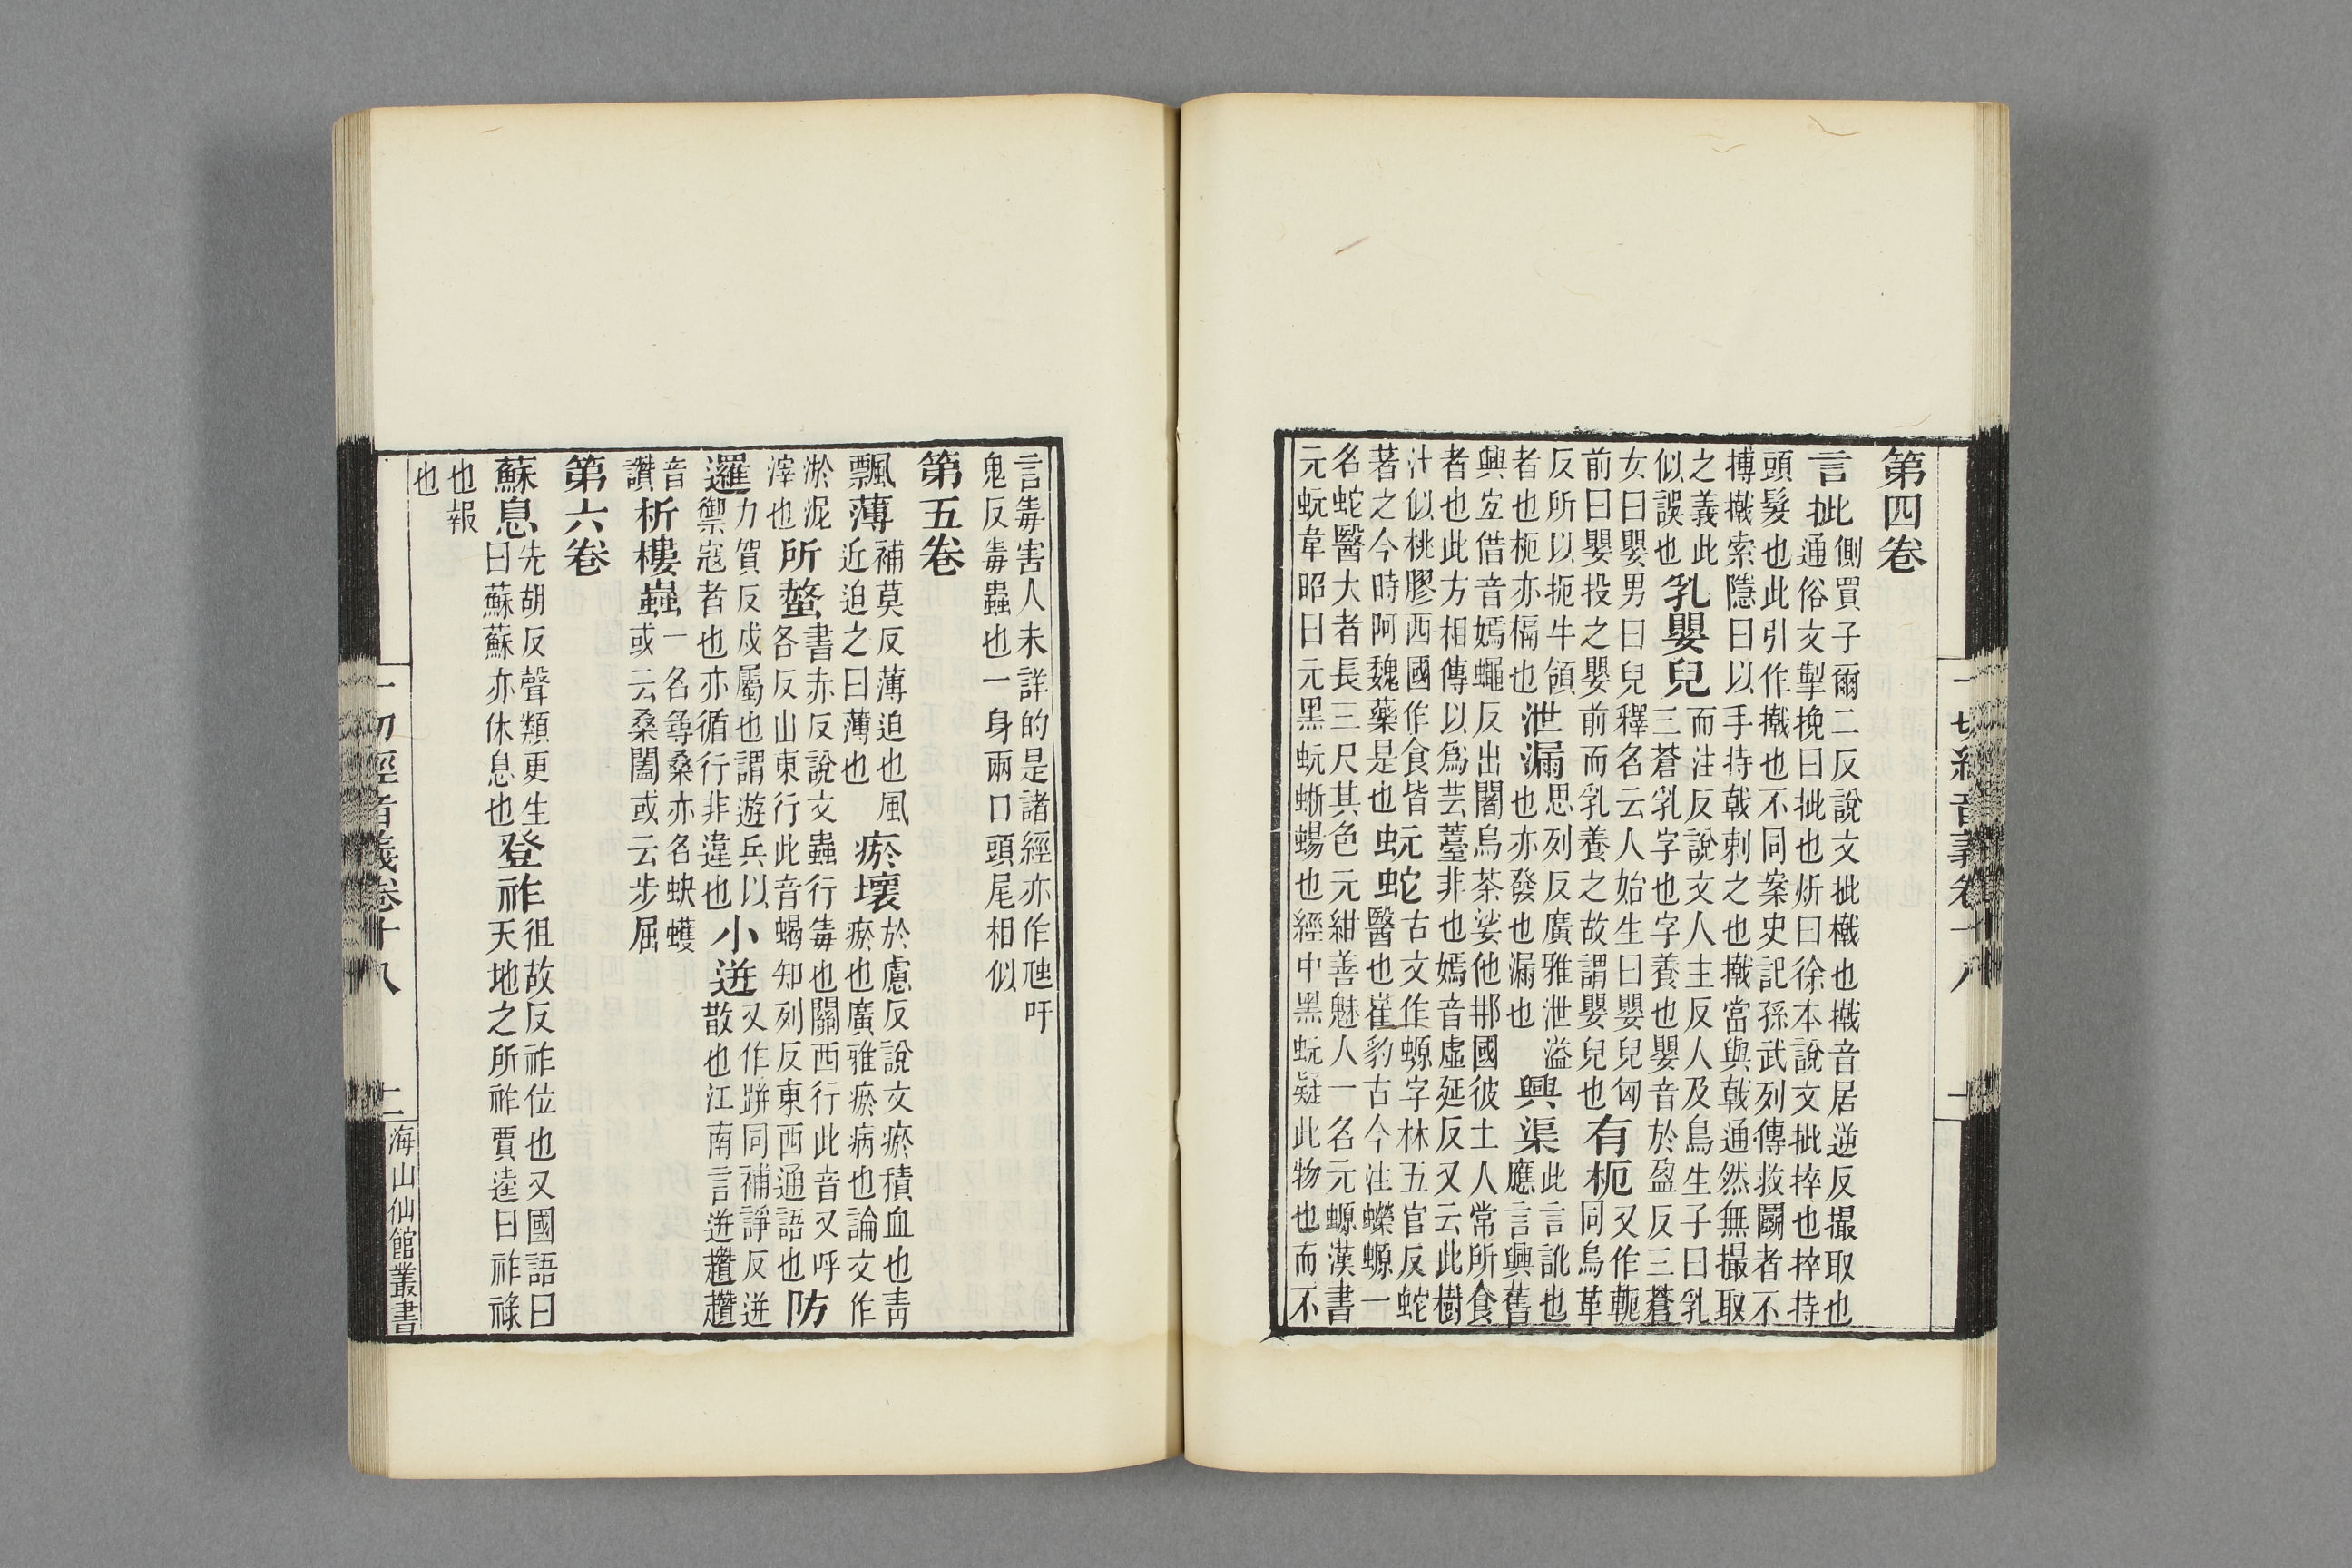 第四卷
言㧗側買子爾二反說文㧗㩴也㩴音居逆反撮取也
通俗文掣挽曰㧗也炘曰徐本說文㧗捽也捽持
頭髮也此引作㩴也不同案史記孫武列傳救鬬者不
搏㩴索隱曰以手持戟刺之也㩴當與戟通然無撮取
之義此
似誤也
乳嬰兒而注反說文人主反人及鳥生子曰乳
三蒼乳字也字養也嬰音於盈反三蒼
女曰嬰男曰兒釋名云人始生曰嬰兒匈
前曰嬰投之嬰前而乳養之故謂嬰兒也
有枙又作軛
同烏革
反所以扼牛領
者也枙亦槅也
泄漏思列反廣雅泄溢
也亦發也漏也
興渠此言訛也
應言興舊
興宐借音嫣蠅反出闍烏茶娑他𨙻國彼土人常所食
者也此方相傳以爲芸薹非也嫣音虛延反又云此樹
汁似桃膠西國作食皆
著之今時阿魏藥是也
蚖蛇古文作螈字林五官反蛇
醫也崔豹古今注蠑螈一
名蛇醫大者長三尺其色元紺善魅人一名元螈漢書
元蚖韋昭曰元黑蚖蜥蜴也經中黑蚖疑此物也而不
一切經音義卷十八
言毒害人未詳的是諸經亦作虺吁
鬼反毒蟲也一身兩口頭尾相似
第五卷
飄薄補莫反薄迫也風
近迫之曰薄也
瘀壞於慮反說文瘀積血也靑
瘀也廣雅瘀病也論文作
淤泥
滓也
所螫書赤反說文蟲行毒也關西行此音又呼
各反山東行此音蝎知列反東西通語也
防
邏力賀反戍屬也謂遊兵以
禦寇者也亦循行非違也
小迸又作跰同補諍反迸
散也江南言迸趲趲
音
讚
析樓蟲一名尋桑亦名蚗蠖
或云桑闔或云步屈
第六卷
蘇息先胡反聲類更生
曰蘇蘇亦休息也
登祚徂故反祚位也又國語曰
天地之所祚賈逵曰祚祿
也報
也
一切經音義卷十八
二
海山仙館叢書